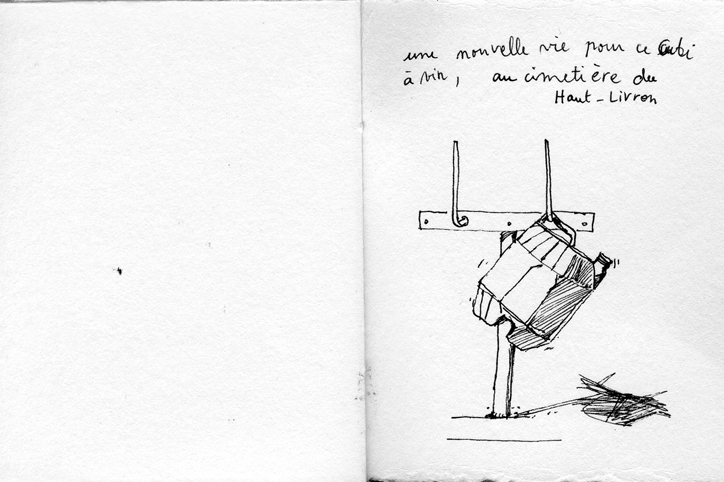 une nouvelle vie pour ce Cubi
à vin, au cimetière du
Haut-Livron